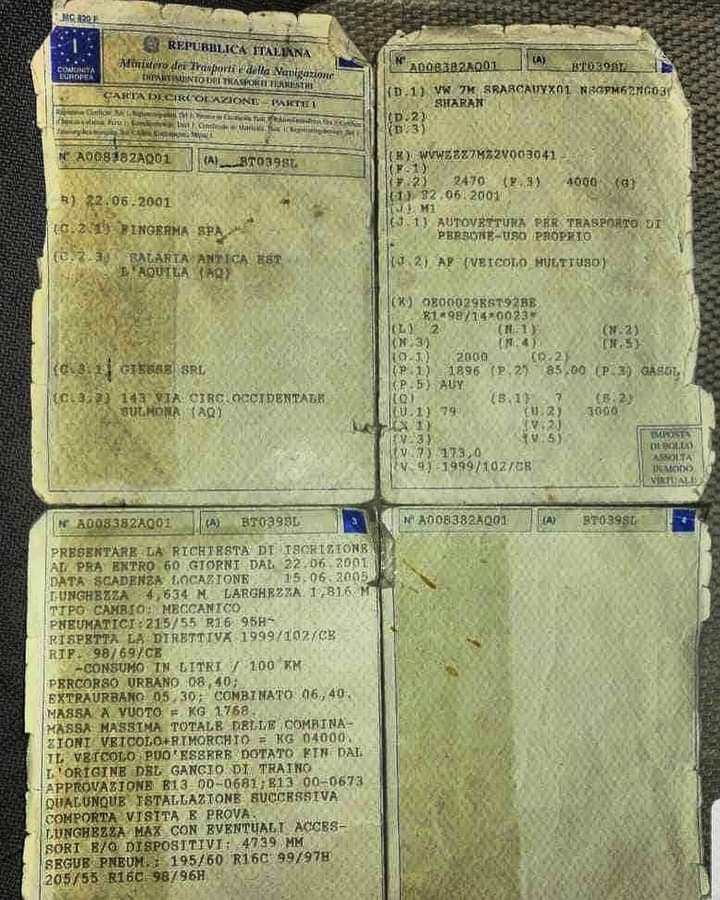 MC 820 F
I
COMUNITÀ
EUROPEA
REPUBBLICA ITALIANA
Ministero dei Trasporti e della Navigazione
DIPARTIMENTO DEI TRASPORTI TERRESTRI
CARTA DI CIRCOLAZIONE - PARTE I
N° A008382AQ01 (A) BT039SL
B) 22.06.2001
(C.2.1) FINGERMA SPA
(C.2.3) SALARIA ANTICA EST
L'AQUILA (AQ)
(C.3.1) GIESSE SRL
(C.3.3) 143 VIA CIRC.OCCIDENTALE
SULMONA (AQ)
N° A008382AQ01 (A) BT039SL
(D.1) VW 7M
SHARAN
(D.2)
(D.3)
(E) WVWZZZ7MZ2V003041
(F.1)
(F.2) 2470 (F.3) 4000 (G)
(I) 22.06.2001
(J) M1
(J.1) AUTOVETTURA PER TRASPORTO DI
PERSONE-USO PROPRIO
(J.2) AF (VEICOLO MULTIUSO)
(K) OE00029EST92BE
E1*98/14*0023*
(L) 2 (N.1) (N.2)
(N.3) (N.4) (N.5)
(O.1) 2000 (O.2)
(P.1) 1896 (P.2) 85.00 (P.3) GASOL
(P.5) AUY
(Q) (S.1) 7 (S.2)
(U.1) 79 (U.2) 3000
(V.1) (V.2)
(V.3) (V.5)
(V.7) 173,0
(V.9) 1999/102/CE
IMPOSTA
DI BOLLO
ASSOLTA
IN MODO
VIRTUALE
N° A008382AQ01 (A) BT039SL 3
PRESENTARE LA RICHIESTA DI ISCRIZIONE
AL PRA ENTRO 60 GIORNI DAL 22.06.2001
DATA SCADENZA LOCAZIONE 15.06.2005
LUNGHEZZA 4,634 M LARGHEZZA 1,816 M
TIPO CAMBIO: MECCANICO
PNEUMATICI:215/55 R16 95H
RISPETTA LA DIRETTIVA 1999/102/CE
RIF. 98/69/CE
-CONSUMO IN LITRI / 100 KM
PERCORSO URBANO 08,40;
EXTRAURBANO 05,30; COMBINATO 06,40.
MASSA A VUOTO = KG 1768.
MASSA MASSIMA TOTALE DELLE COMBINA-
ZIONI VEICOLO+RIMORCHIO = KG 04000.
IL VEICOLO PUO'ESSERE DOTATO FIN DAL
L'ORIGINE DEL GANCIO DI TRAINO
APPROVAZIONE E13 00-0681;E13 00-0673
QUALUNQUE ISTALLAZIONE SUCCESSIVA
COMPORTA VISITA E PROVA.
LUNGHEZZA MAX CON EVENTUALI ACCES-
SORI E/O DISPOSITIVI: 4739 MM
SEGUE PNEUM.: 195/60 R16C 99/97H
205/55 R16C 98/96H
N° A008382AQ01 (A) BT039SL 4